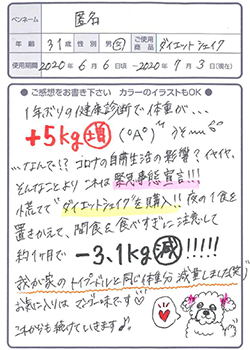 ペンネーム 匿名
年齢 31歳 性別 男・女 ご使用商品 ダイエットシェイク
使用期間 2020年6月6日頃〜2020年7月3日(現在)
● ご感想をお書き下さい カラーのイラストもOK ●
1年ぶりの健康診断で体重が...
+5kg増 (°Д°)
...なんで!? コロナの自粛生活の影響? イヤイヤ、
そんなことより これは緊急事態宣言!!!
慌てて"ダイエットシェイク"を購入!! 夜の1食を
置きかえて、間食&食べすぎに注意して
約1ヶ月で −3.1kg減!!!!!
我が家のトイプードルと同じ体重分 減量しました(笑)
お気に入りは マンゴー味です♡
これからも続けていきます♪